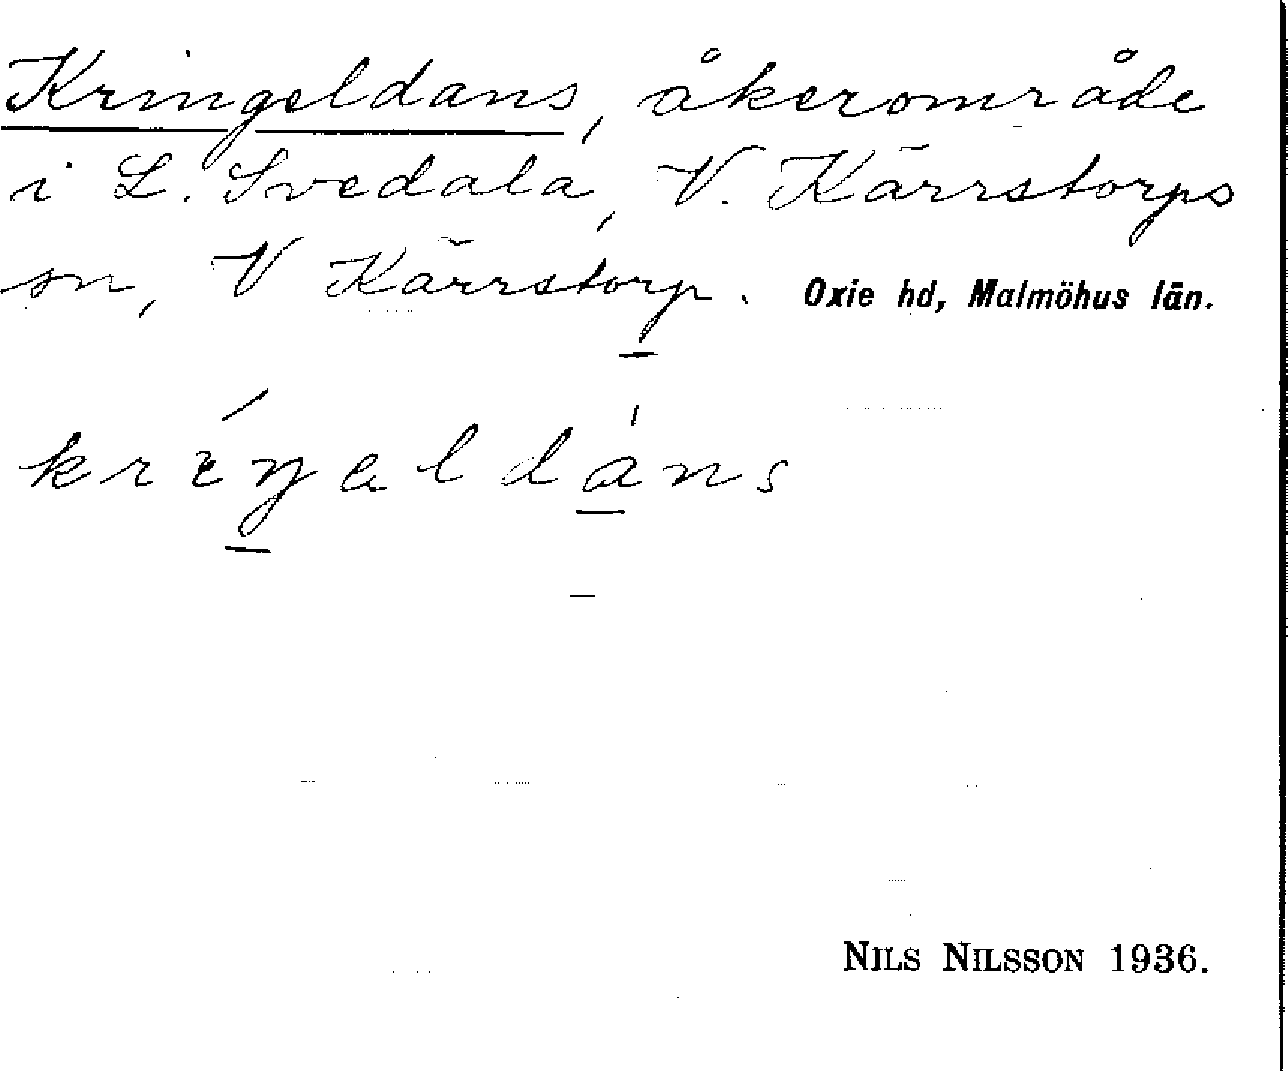 Kringeldans, åkerområde
i L. Svedala, V. Kärrstorps
sn, V Kärrstorp. Oxie hd, Malmöhus län.
kríŋəldàns
NILS NILSSON 1936.